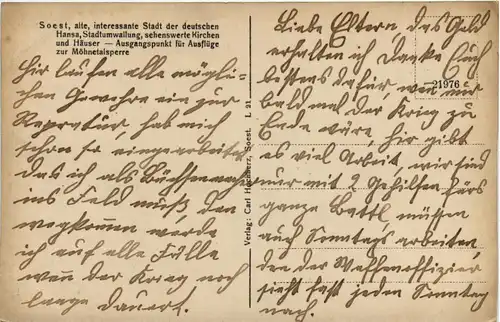 Soest, alte, interessante Stadt der deutschen
Hansa, Stadtumwallung, sehenswerte Kirchen
und Häuser — Ausgangspunkt für Ausflüge
zur Möhnetalsperre
Hir laufen alle mögli-
chen Gewehre ein zur
Repratur, hab mich
schon so eingearbeitet
das ich als Büchsenmacher
ins Feld muß, den
wegkommen werde
ich auf alle Fälle
wen der Krieg noch
lange dauert.
Verlag: Carl Hochherz, Soest. L 21
21976
Liebe Eltern das Geld
erhalten ich Danke Euch
bestens dafür wen nur
bald mal der Krieg zu
Ende wäre, hir gibt
es viel Arbeit, wir sind
nur mit 2 Gehilfen fürs
ganze Battl, müßen
auch Sonntags arbeiten,
den der Waffenoffizier
sieht fast jeden Sonntag
nach.